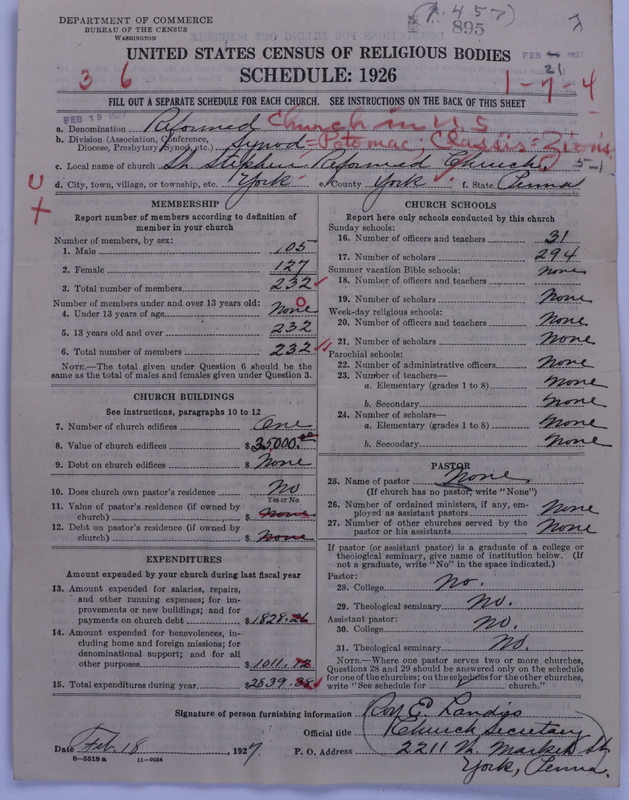 DEPARTMENT OF COMMERCE
BUREAU OF THE CENSUS
WASHINGTON
(P. 457)
895
UNITED STATES CENSUS OF RELIGIOUS BODIES
SCHEDULE: 1926
FEB 21 1927
3 6
1-7-4
FILL OUT A SEPARATE SCHEDULE FOR EACH CHURCH. SEE INSTRUCTIONS ON THE BACK OF THIS SHEET
FEB 19 1927
a. Denomination Reformed Church in U.S
b. Division (Association, Conference, Diocese, Presbytery, Synod, etc.) Synod = Potomac, Classis = Zion's
c. Local name of church St. Stephen Reformed Church
5-1
d. City, town, village, or township, etc. York e. County York f. State Penna
MEMBERSHIP
Report number of members according to definition of member in your church
Number of members, by sex:
1. Male 105
2. Female 127
3. Total number of members 232
Number of members under and over 13 years old:
4. Under 13 years of age None 0
5. 13 years old and over 232
6. Total number of members 232
NOTE.—The total given under Question 6 should be the same as the total of males and females given under Question 3.
CHURCH BUILDINGS
See instructions, paragraphs 10 to 12
7. Number of church edifices One
8. Value of church edifices $ 35000.00
9. Debt on church edifices $ None
10. Does church own pastor's residence No
Yes or No
11. Value of pastor's residence (if owned by church) $ None
12. Debt on pastor's residence (if owned by church) $ None
EXPENDITURES
Amount expended by your church during last fiscal year
13. Amount expended for salaries, repairs, and other running expenses; for improvements or new buildings; and for payments on church debt $ 1828.26
14. Amount expended for benevolences, including home and foreign missions; for denominational support; and for all other purposes $ 1011.12
15. Total expenditures during year $ 2839.38
CHURCH SCHOOLS
Report here only schools conducted by this church
Sunday schools:
16. Number of officers and teachers 31
17. Number of scholars 294
Summer vacation Bible schools:
18. Number of officers and teachers None
19. Number of scholars None
Week-day religious schools:
20. Number of officers and teachers None
21. Number of scholars None
Parochial schools:
22. Number of administrative officers None
23. Number of teachers—
a. Elementary (grades 1 to 8) None
b. Secondary None
24. Number of scholars—
a. Elementary (grades 1 to 8) None
b. Secondary None
PASTOR
25. Name of pastor None
(If church has no pastor, write "None")
26. Number of ordained ministers, if any, employed as assistant pastors None
27. Number of other churches served by the pastor or his assistants None
If pastor (or assistant pastor) is a graduate of a college or theological seminary, give name of institution below. (If not a graduate, write "No" in the space indicated.)
Pastor:
28. College No.
29. Theological seminary No.
Assistant pastor:
30. College No.
31. Theological seminary No.
NOTE.—Where one pastor serves two or more churches, Questions 28 and 29 should be answered only on the schedule for one of the churches; on the schedules for the other churches, write "See schedule for church."
Signature of person furnishing information E. Landis
Official title Church Secretary
Date Feb. 18, 1927 P. O. Address 2211 W. Market St.
York, Penna.
8-5518 a 11-9054